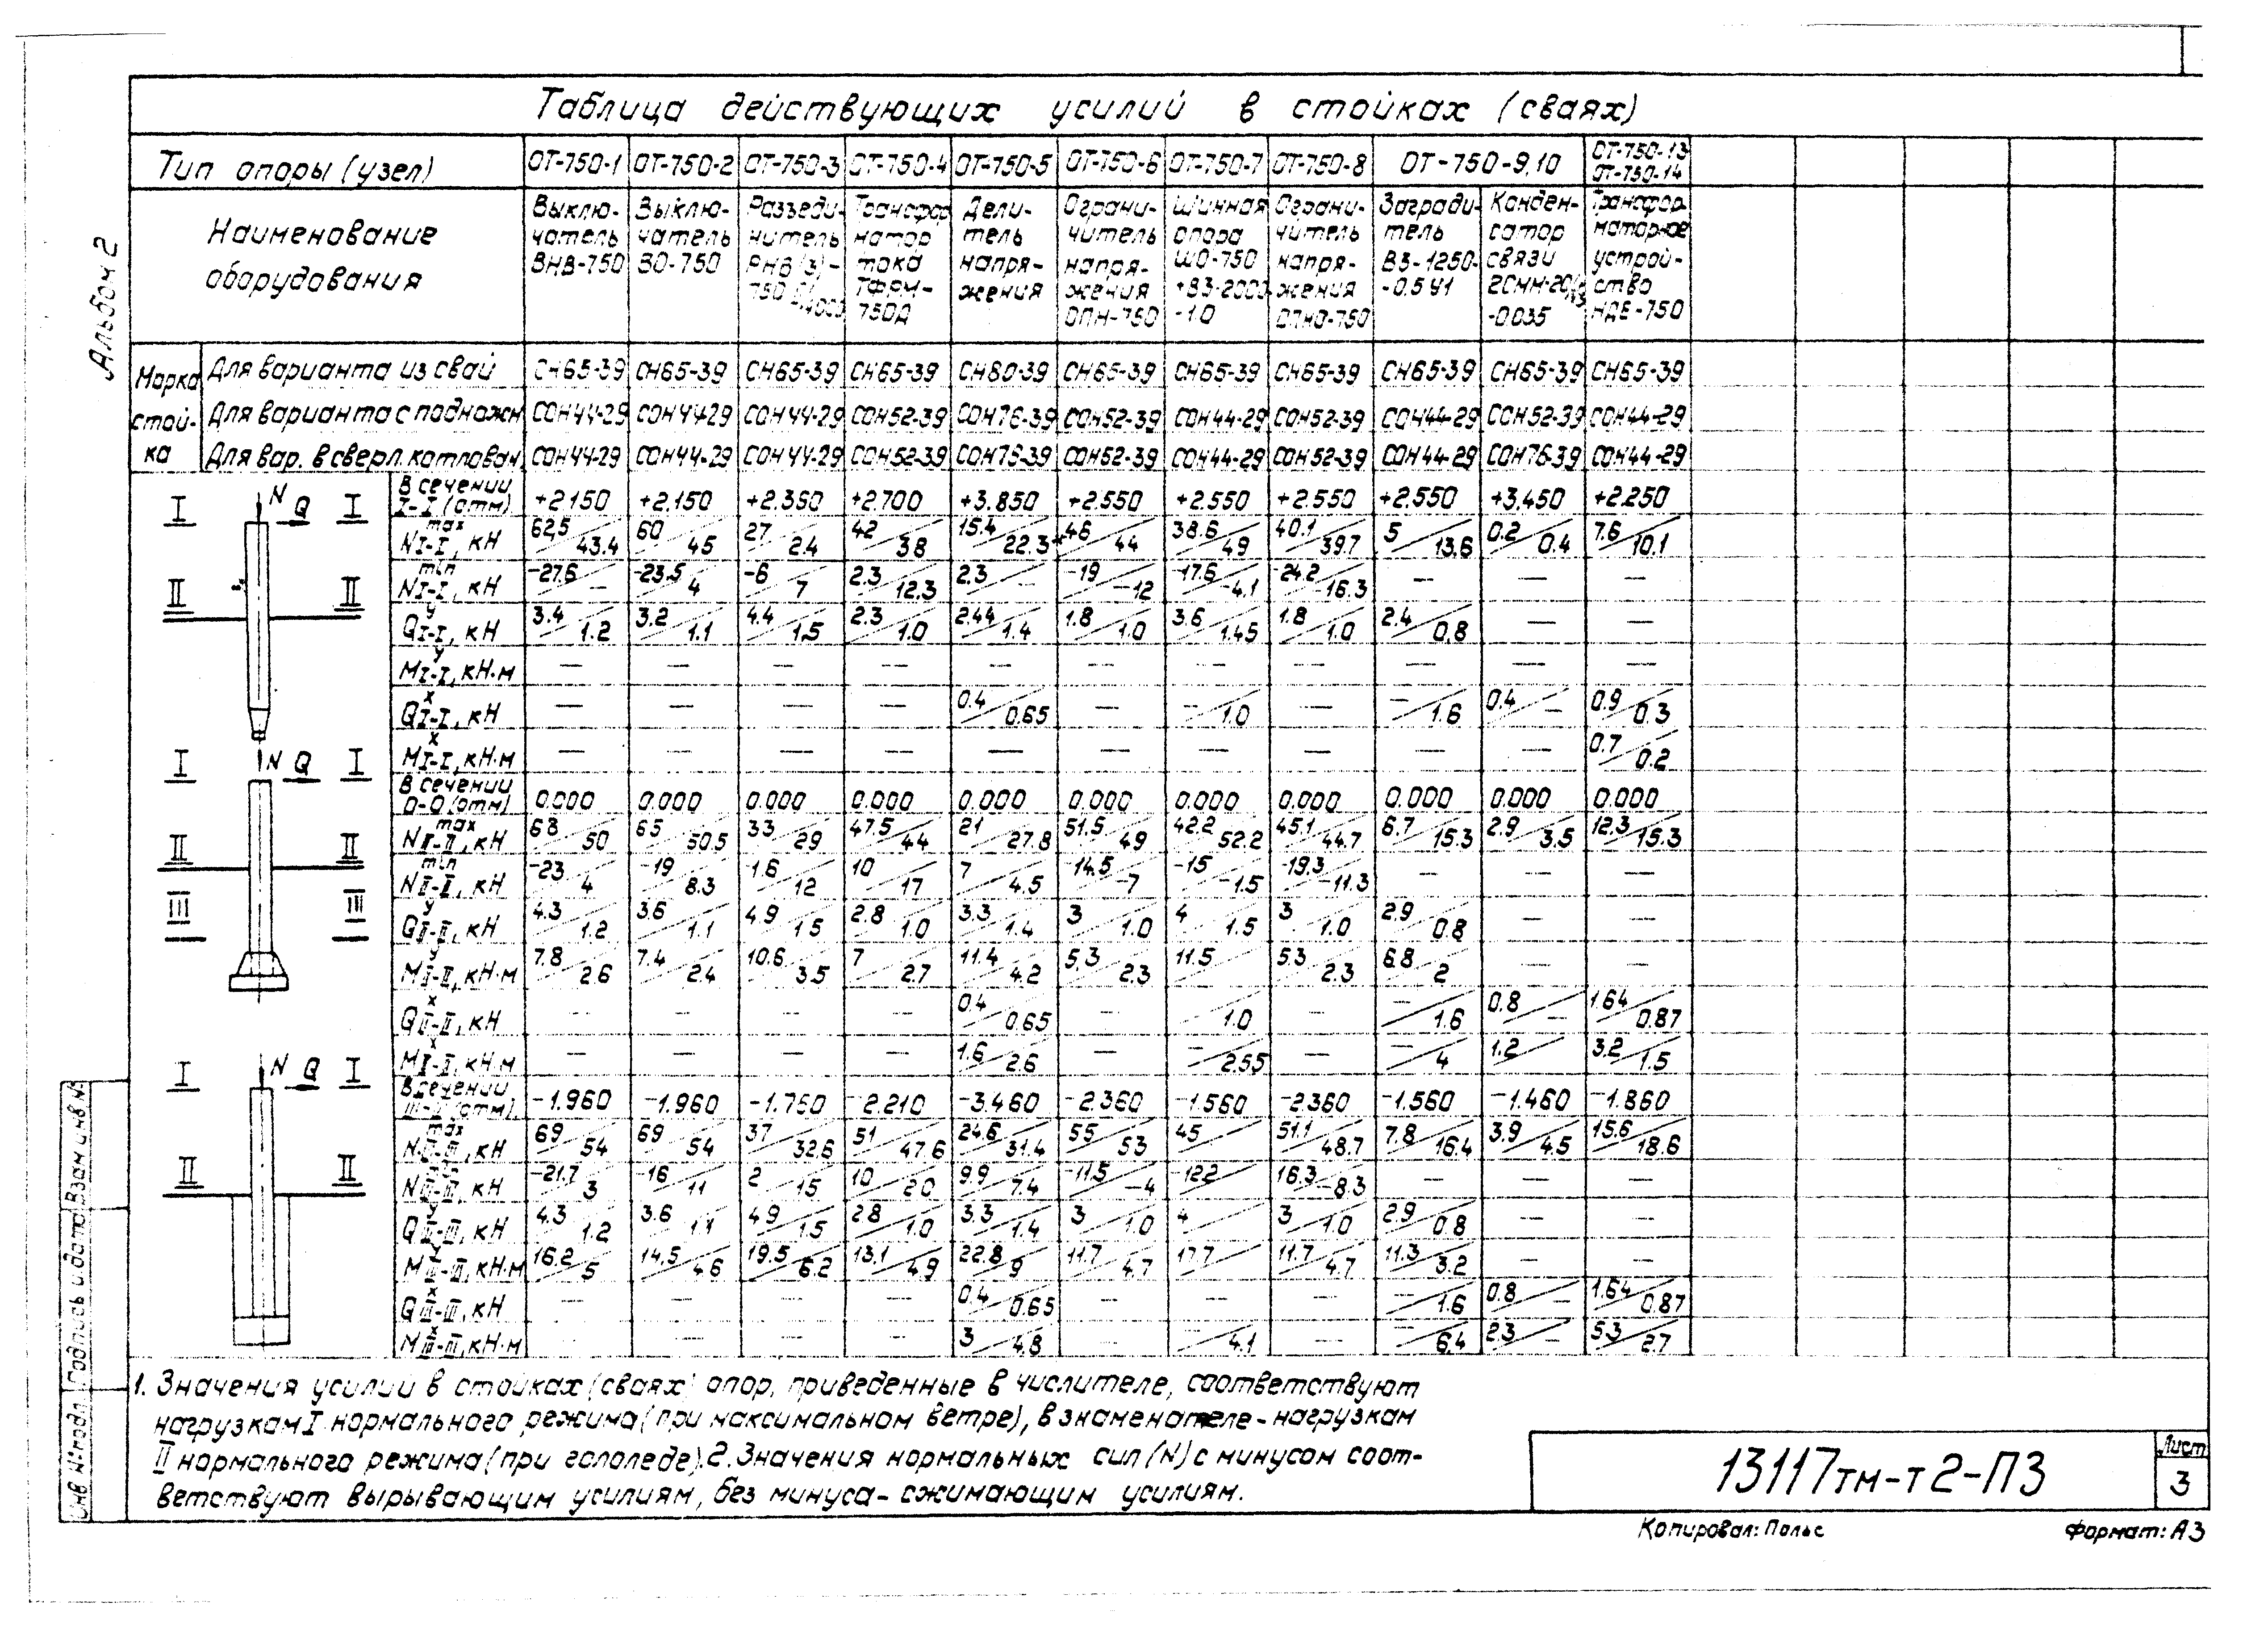 Альбом 2
Таблица действующих усилий в стойках (сваях)
Тип опоры (узел) ОТ-750-1 ОТ-750-2 ОТ-750-3 ОТ-750-4 ОТ-750-5 ОТ-750-6 ОТ-750-7 ОТ-750-8 ОТ-750-9,10 ОТ-750-13 ОТ-750-14
Наименование оборудования
Выключатель ВНВ-750
Выключатель ВО-750
Разъединитель РНВ(З)-750
Трансформатор тока ТФРМ-750Д
Делитель напряжения
Ограничитель напряжения ОПН-750
Шинная опора ШО-750 +ВЗ-2000-1.0
Ограничитель напряжения ОПНО-750
Заградитель ВЗ-1250-0.5У1
Конденсатор связи -0.035
Трансформаторное устройство НДЕ-750
Марка стойка
Для варианта из свай СН65-39 СН65-39 СН65-39 СН65-39 СН80-39 СН65-39 СН65-39 СН65-39 СН65-39 СН65-39 СН65-39
Для варианта с подножн СОН44-29 СОН44-29 СОН44-29 СОН52-39 СОН76-39 СОН52-39 СОН44-29 СОН52-39 СОН44-29 СОН52-39 СОН44-29
Для вар. в сверл. котлован. СОН44-29 СОН44-29 СОН44-29 СОН52-39 СОН76-39 СОН52-39 СОН44-29 СОН52-39 СОН44-29 СОН76-39 СОН44-29
В сечении I-I (отм) +2.150 +2.150 +2.350 +2.700 +3.850 +2.550 +2.550 +2.550 +2.550 +3.450 +2.250
N max I-I, кН 62,5/43.4 60/45 27/24 42/38 15.4/22.3* 46/44 38.6/49 40.1/39.7 5/13.6 0.2/0.4 7.6/10.1
N min I-I, кН -27.6/— -23.5/4 -6/7 2.3/12.3 2.3/— -19/-12 -17.6/-4.1 -24.2/-16.3 — — —
Q у I-I, кН 3.4/1.2 3.2/1.1 4.4/1.5 2.3/1.0 2.44/1.4 1.8/1.0 3.6/1.45 1.8/1.0 2.4/0.8 — —
М у I-I, кН·м — — — — — — — — — — —
Q х I-I, кН — — — — 0.4/0.65 — —/1.0 — —/1.6 0.4/— 0.9/0.3
М х I-I, кН·м — — — — — — — — — — 0.7/0.2
В сечении 0-0 (отм) 0.000 0.000 0.000 0.000 0.000 0.000 0.000 0.000 0.000 0.000 0.000
N max II-II, кН 68/50 65/50.5 33/29 47.5/44 21/27.8 51.5/49 42.2/52.2 45.1/44.7 6.7/15.3 2.9/3.5 12.3/15.3
N min II-II, кН -23/4 -19/8.3 1.6/12 10/17 7/4.5 -14.5/-7 -15/-1.5 -19.3/-11.3 — — —
Q у II-II, кН 4.3/1.2 3.6/1.1 4.9/1.5 2.8/1.0 3.3/1.4 3/1.0 4/1.5 3/1.0 2.9/0.8 — —
М у II-II, кН·м 7.8/2.6 7.4/2.4 10.6/3.5 7/2.7 11.4/4.2 5.3/2.3 11.5/ 5.3/2.3 6.8/2 — —
Q х II-II, кН — — — — 0.4/0.65 — /1.0 — —/1.6 0.8/— 1.64/0.87
М х II-II, кН·м — — — — 1.6/2.6 — —/2.55 — —/4 1.2/ 3.2/1.5
В сечении III-III (отм) -1.960 -1.960 -1.760 -2.210 -3.460 -2.360 -1.560 -2.360 -1.560 -1.460 -1.860
N max III-III, кН 69/54 69/54 37/32.6 51/47.6 24.6/31.4 55/53 45/ 51.1/48.7 7.8/16.4 3.9/4.5 15.6/18.6
N III-III, кН -21.7/3 -16/11 2/15 10/20 9.9/7.4 -11.5/-4 -12.2/ 16.3/-8.3 — — —
Q у III-III, кН 4.3/1.2 3.6/1.1 4.9/1.5 2.8/1.0 3.3/1.4 3/1.0 4/ 3/1.0 2.9/0.8 — —
М у III-III, кН·м 16.2/5 14.5/4.6 19.5/6.2 13.1/4.9 22.8/9 11.7/4.7 17.7/ 11.7/4.7 11.3/3.2 — —
Q х III-III, кН — — — — 0.4/0.65 — — —/1.6 0.8/— 1.64/0.87
М х III-III, кН·м — — — — 3/4.8 — /4.1 — —/6.4 2.3/— 5.3/2.7
I N Q I
II II
I N Q I
II II
III III
I N Q I
II II
1. Значения усилий в стойках (сваях) опор, приведенные в числителе, соответствуют
нагрузкам I нормального режима (при максимальном ветре), в знаменателе - нагрузкам
II нормального режима (при гололеде). 2. Значения нормальных сил (N) с минусом соот-
ветствуют вырывающим усилиям, без минуса - сжимающим усилиям.
13117тм-т2-ПЗ
Лист
3
Инв № подл. Подпись и дата Взам инв №
Копировал: Польс
Формат: А3